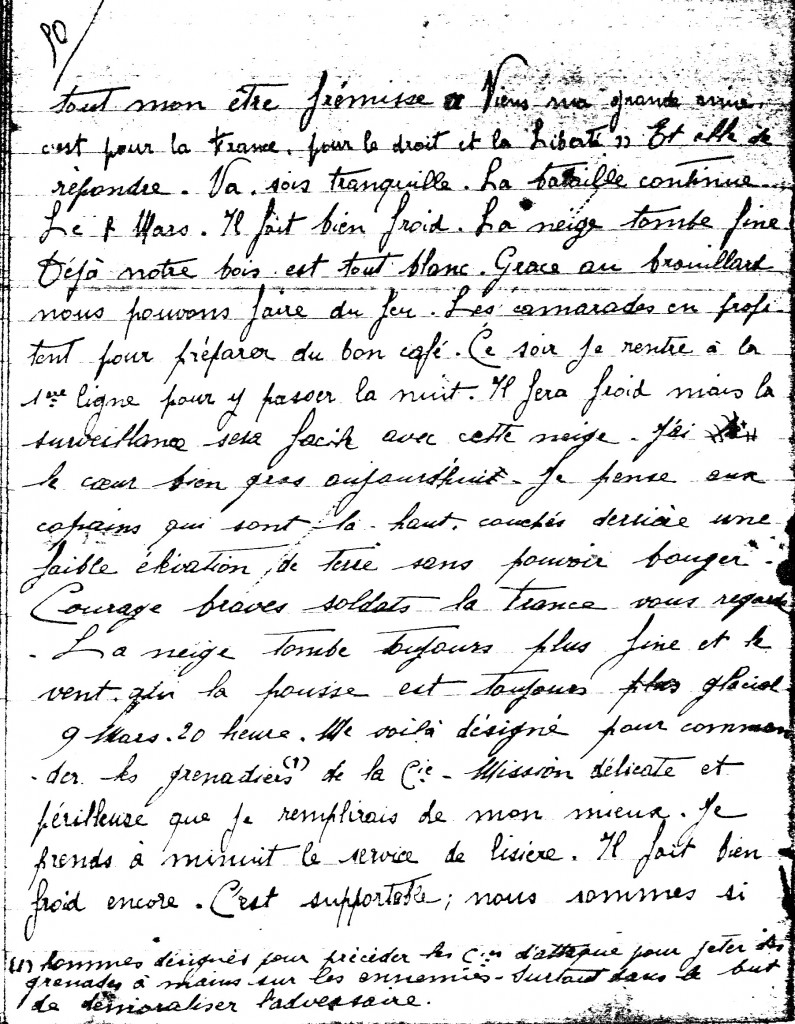 90/
tout mon être frémisse « Viens ma grande amie.
c'est pour la France. pour le droit et la Liberté » Et elle de
répondre. Va. sois tranquille. La bataille continue.
Le 8 Mars. Il fait bien froid. La neige tombe fine
Déjà notre bois est tout blanc. Grace au brouillard
nous pouvons faire du feu. Les camarades en profi-
tent pour préparer du bon café. Ce soir je rentre à la
1ère ligne pour y passer la nuit. Il fera froid mais la
surveillance sera facile avec cette neige. J'ai
le cœur bien gros aujourd'huit. Je pense aux
copains qui sont là-haut. couchés derrière une
faible élévation de terre sans pouvoir bouger.
Courage braves soldats la France vous regarde
- La neige tombe toujours plus fine et le
vent qui la pousse est toujours plus glacial.
9 Mars. 20 heure. Me voilà désigné pour comman
-der les grenadiers (1) de la Cie - Mission délicate et
périlleuse que je remplirais de mon mieux. Je
prends à minuit le service de lisière. Il fait bien
froid encore. C'est supportable; nous sommes si
(1) hommes désignés pour précéder les Cies d'attaque pour jeter des
grenades à mains sur les ennemies - Surtout dans le but
de démoraliser l'adversaire.